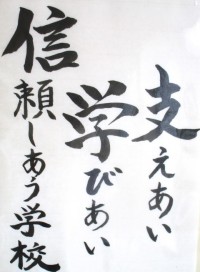 支えあい
学びあい
信頼しあう学校